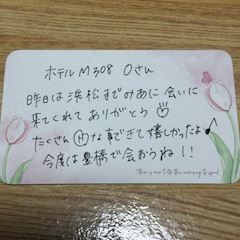 ホテルM308 Oさん
昨日は浜松までみあに会いに
来てくれてありがとう♡
たくさんⒽな事できて嬉しかったよ♪
今度は豊橋で会おうね!!